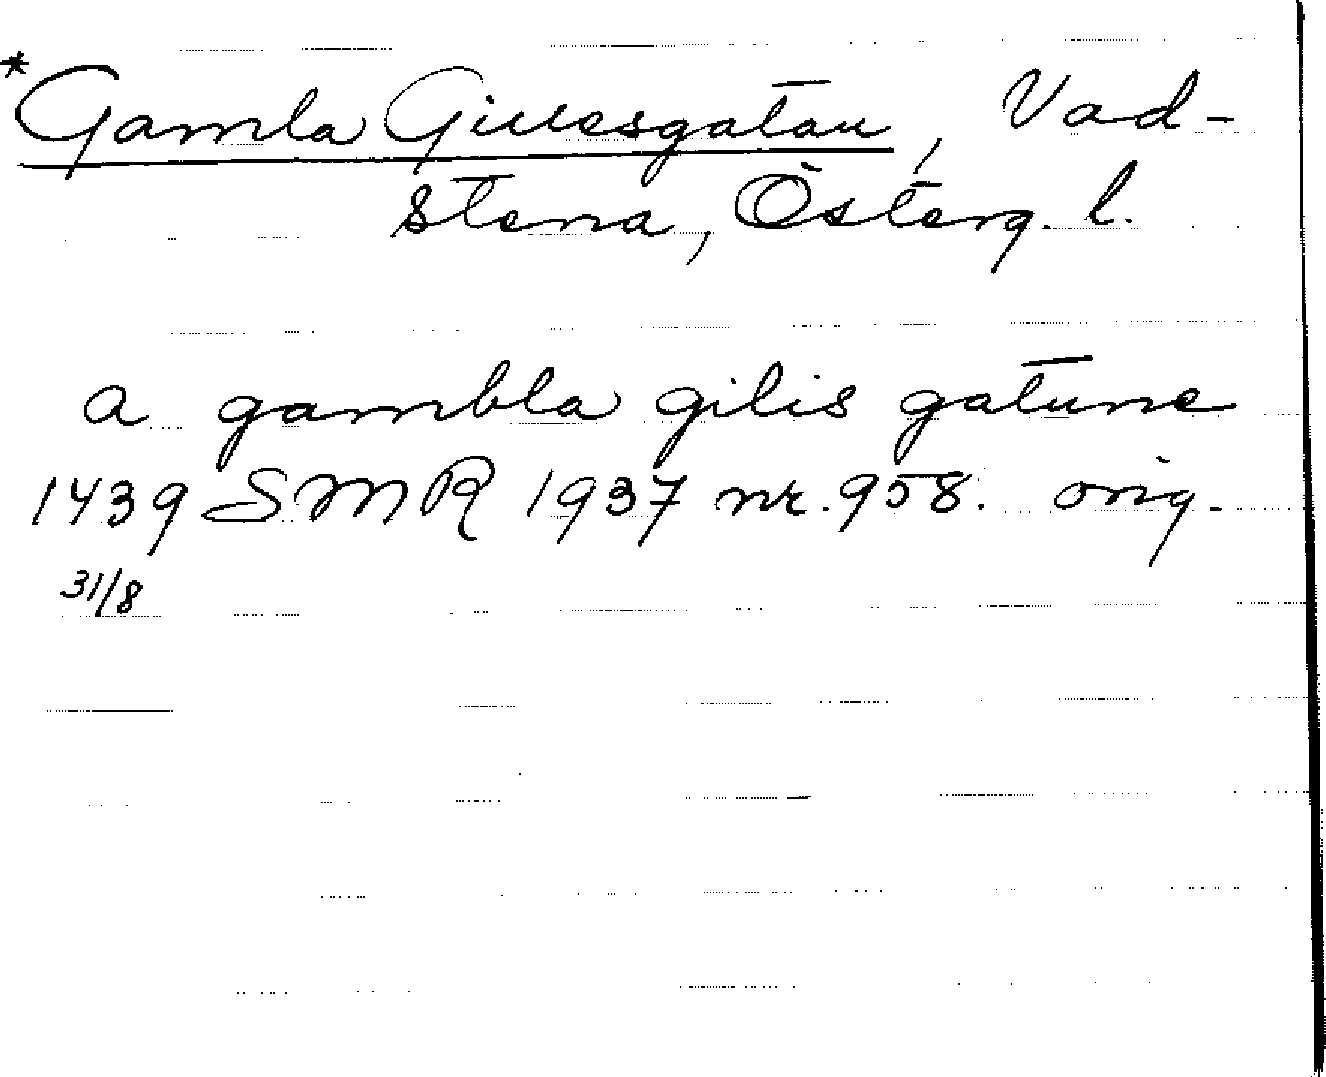 *Gamla Gillesgatan, Vad-
stena, Österg. l.
a gambla gilis gatune
1439 SMR 1937 nr. 958. orig.
31/8